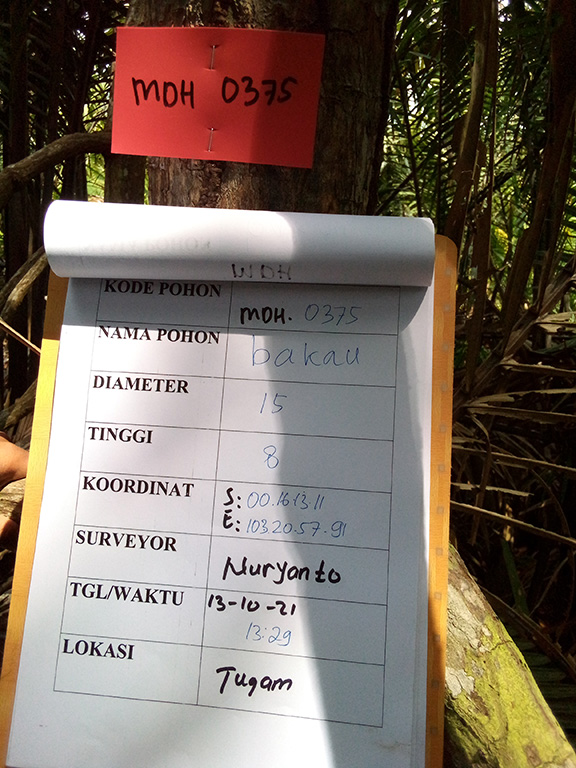 MDH 0375
MDH
KODE POHON MDH. 0375
NAMA POHON bakau
DIAMETER 15
TINGGI 8
KOORDINAT S: 00.16.13.11
E: 103.20.57.91
SURVEYOR Nuryanto
TGL/WAKTU 13-10-21
13:29
LOKASI Tugam